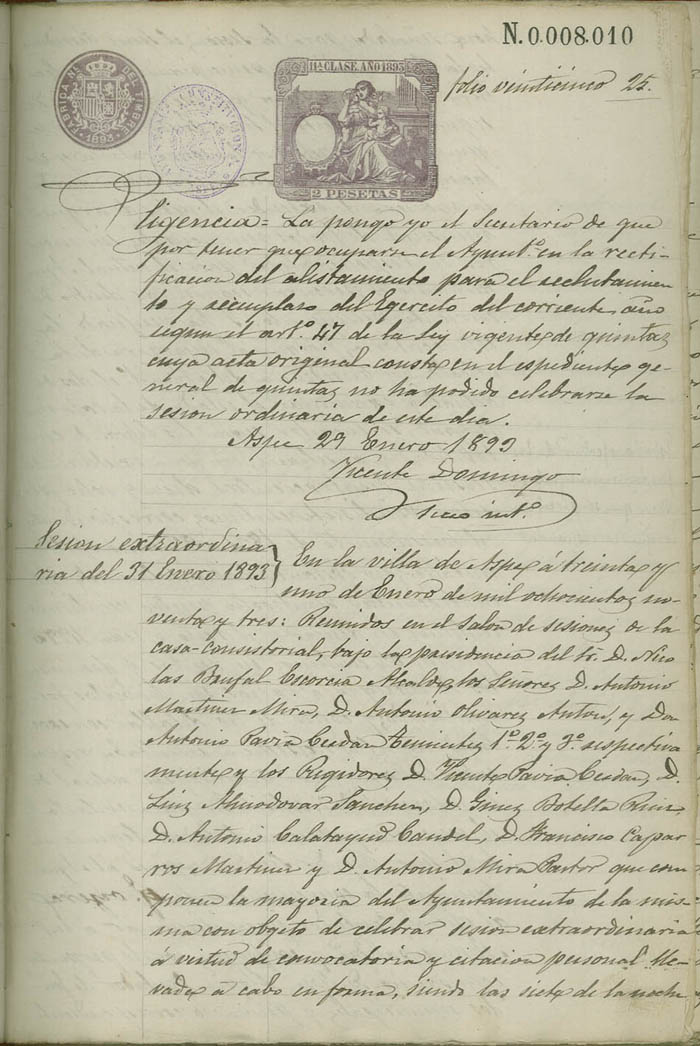 N.0.008.010
FABRICA NL. DEL TIMBRE
1893
11ª CLASE. AÑO 1893
2 PESETAS
folio veinticinco 25.
Diligencia = La pongo yo el Secretario de que
por tener que ocuparse el Ayuntº. en la recti-
ficacion del alistamiento para el reclutamien
to y reemplazo del Egercito del corriente año
segun el artº. 47 de la Ley vigente de quintas
cuya acta original consta en el espediente ge-
neral de quintas no ha podido celebrarse la
sesion ordinaria de este dia.
Aspe 29 Enero 1893
Vicente Domingo
Srio intº.
Sesion extraordina
ria del 31 Enero 1893
En la villa de Aspe á treinta y
uno de Enero de mil ochocientos no-
venta y tres: Reunidos en el Salon de sesiones de la
casa-consistorial, bajo la presidencia del Sr. D. Nico
las Bonfal Escorcia Alcalde, los Señores D. Antonio
Martinez Mira, D. Antonio Olivares Anton, y Don
Antonio Pavia Cerdan Tenientes 1º. 2º. y 3º. respectiva
mente y los Regidores D. Vicente Pavia Cerdan, D.
Luis Almodovar Sanchez, D. Gines Botella Ruiz,
D. Antonio Calatayud Caudel, D. Francisco Capar
ros Martinez y D. Antonio Mira Pastor que com
ponen la mayoria del Ayuntamiento de la mis-
ma con objeto de celebrar sesion extraordinaria
á virtud de convocatoria y citacion personal lle-
vada á cabo en forma, siendo las siete de la noche